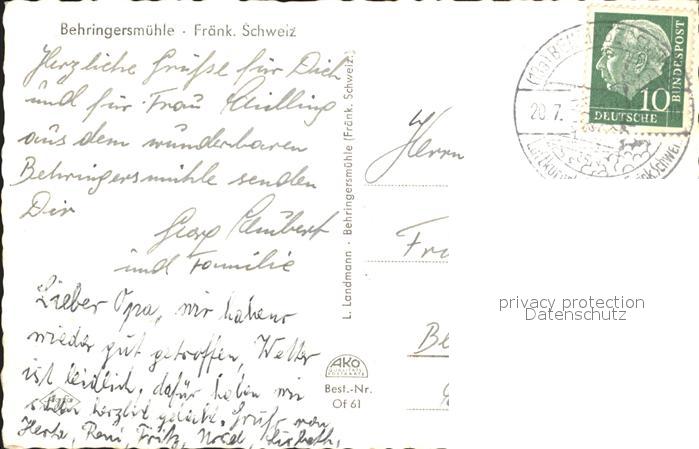 Behringersmühle · Fränk. Schweiz
Herzliche Grüße für Dich
und für Frau
aus dem wunderbaren
Behringersmühle senden
Dir
Georg
und Familie
Lieber Opa, wir haben
wieder gut getroffen, Wetter
ist leidlich, dafür haben wir
herzlich Gruß von
Herta, Reni, Fritz,
L. Landmann · Behringersmühle (Fränk. Schweiz.)
AKO
Best.-Nr.
Of 61
Herrn
Fr
Be
20.7.
10
DEUTSCHE
BUNDESPOST
privacy protection
Datenschutz